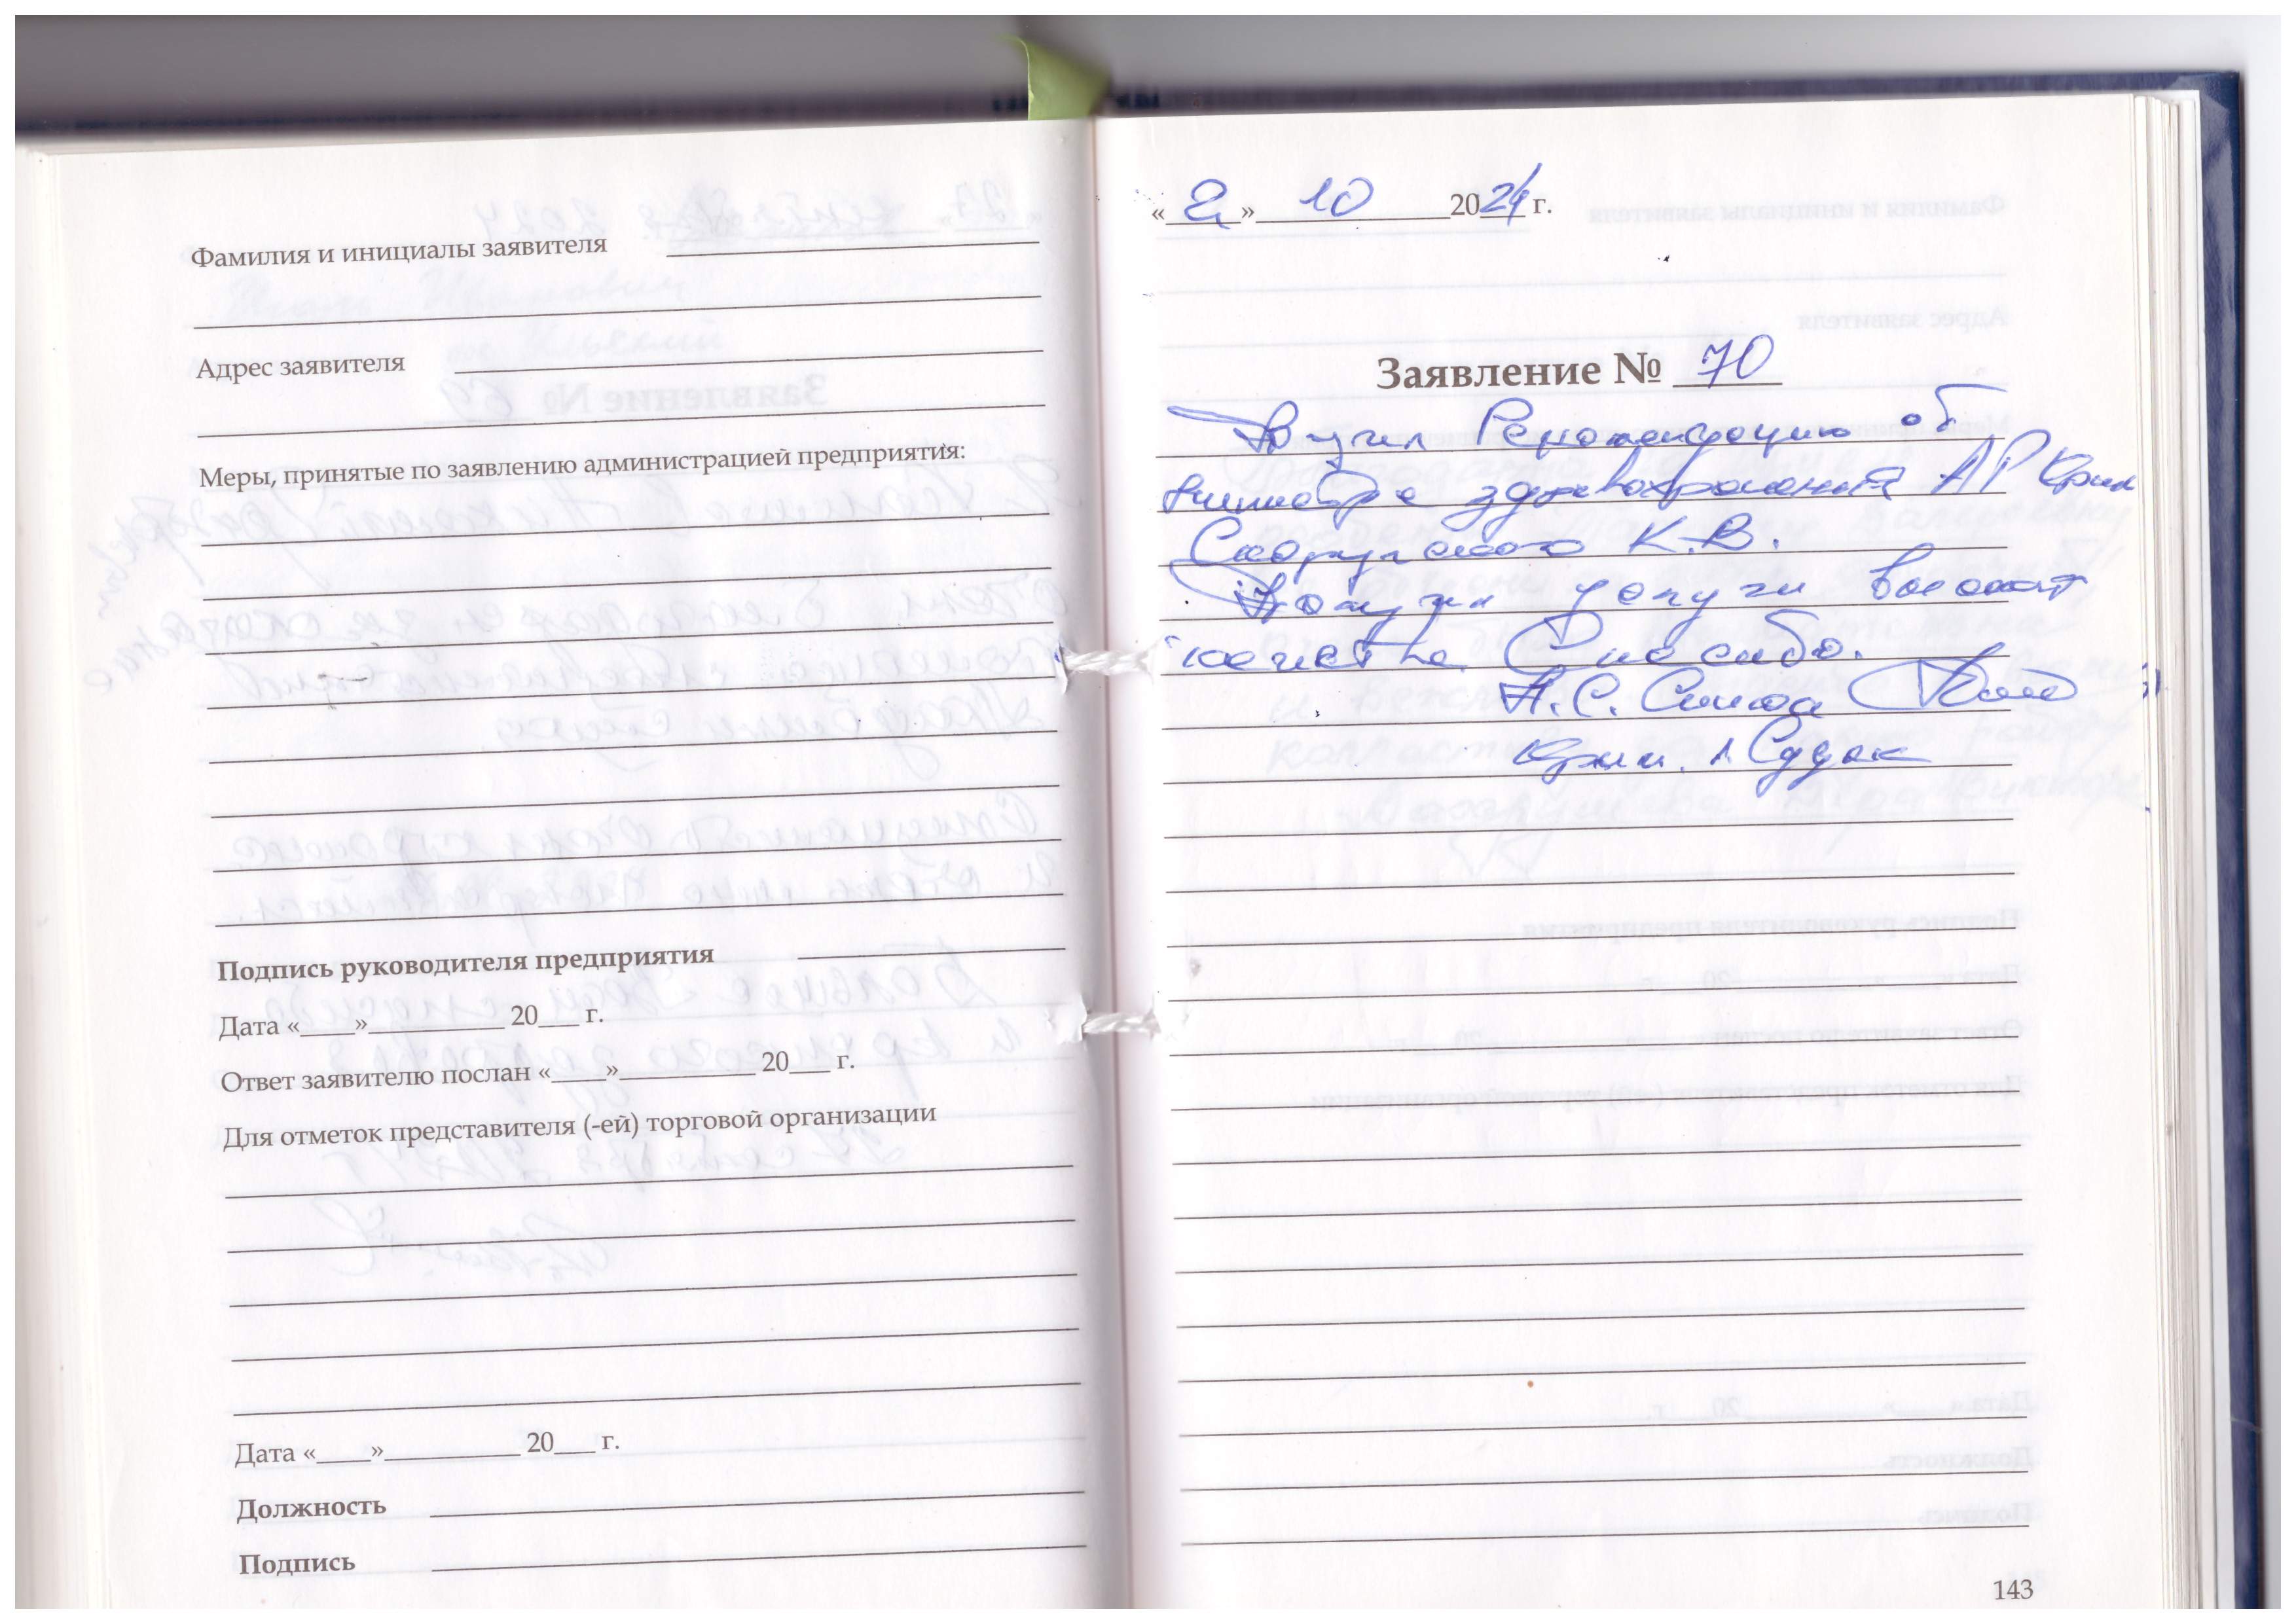 Фамилия и инициалы заявителя
Адрес заявителя
Меры, принятые по заявлению администрацией предприятия:
Подпись руководителя предприятия
Дата «____»__________ 20___ г.
Ответ заявителю послан «____»__________ 20___ г.
Для отметок представителя (-ей) торговой организации
Дата «____»__________ 20___ г.
Должность
Подпись
«2» 10 2024 г.
Заявление № 70
Рекомендацию от
министра здравохранения АР Крым
К.В.
Получил услуги
качества Спасибо.
Крым. г. Судак
143